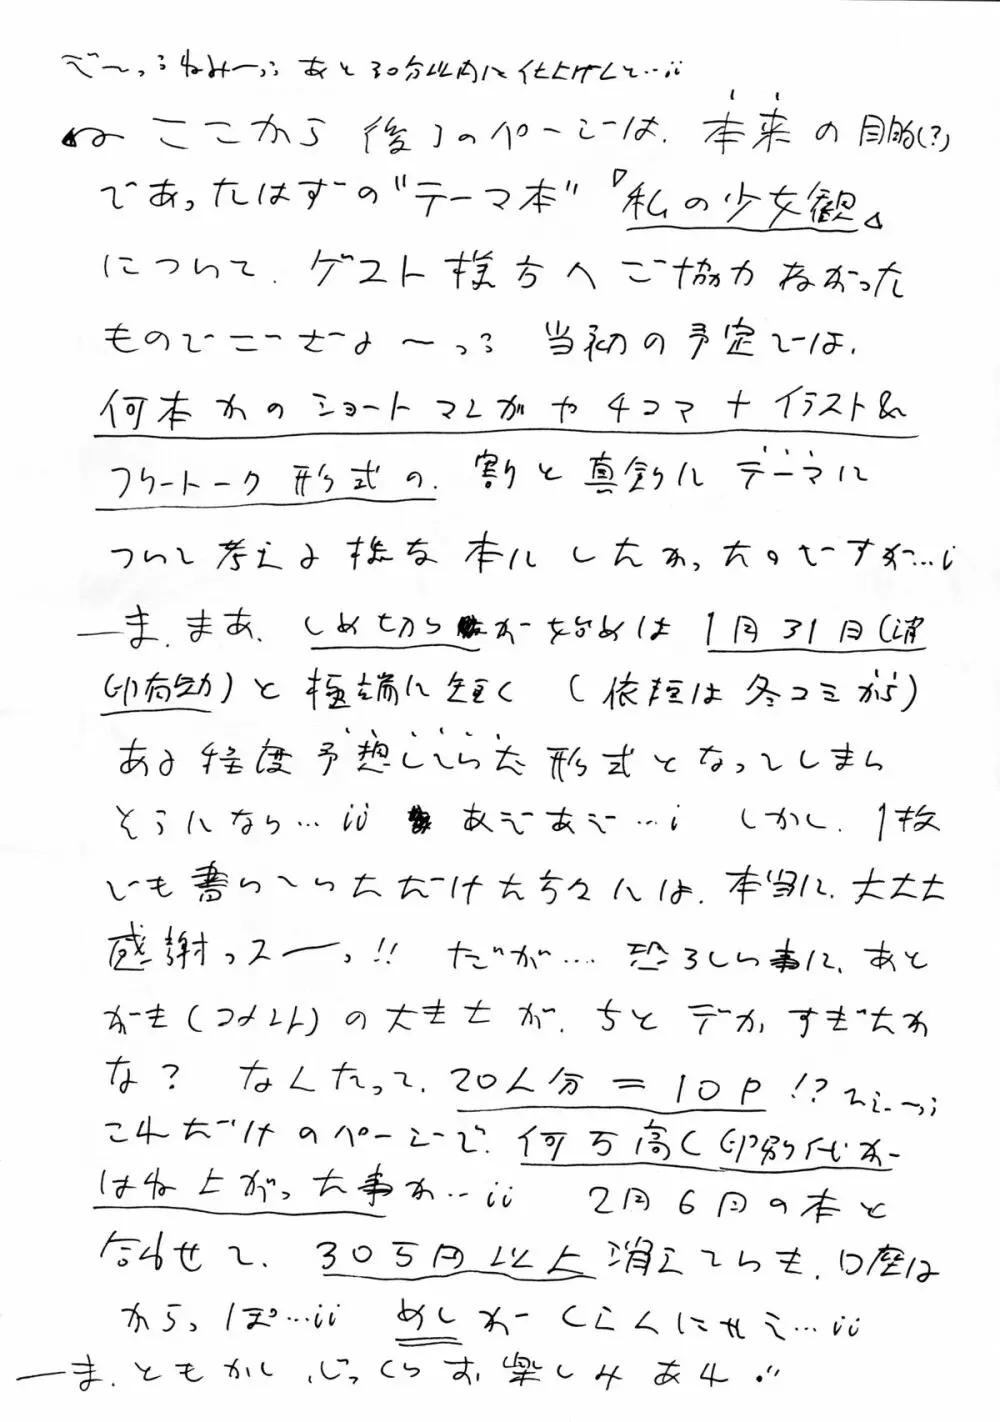 でーっ!ねみーっ!あと30分以内に仕上げんと…!!
ここから後ろのページは、本来の目的(?)
であったはずの"テーマ本"『私の少女観』
について、ゲスト様方へご協力ねがった
ものでございますよ〜っ! 当初の予定では、
何本かのショートマンガや4コマ+イラスト&
フリートーク形式の、割と真剣にテーマに
ついて考える様な本にしたかったのですが…!
ーま、まあ、しめ切りが始めは1月31日(消
印有効)と極端に短く(依頼は冬コミから)
ある程度予想していた形式となってしまい
そうになり…!! あぞあぞ…! しかし、1枚
でも書いていただけた方々には、本当に、大大大
感謝っスーっ!! だが…、恐ろしい事に、あと
がき(コメント)の大きさが、ちとデカすぎたか
な? なんたって、20人分=10P!?
これだけのページで、何万高く印刷代が
はね上がった事か…!! 2月6日の本と
合わせて、30万円以上消えていき、口座は
からっぽ…!! めしがくえんにゃぜえ…!!
ーま、ともかく、じっくりお楽しみあれ!!